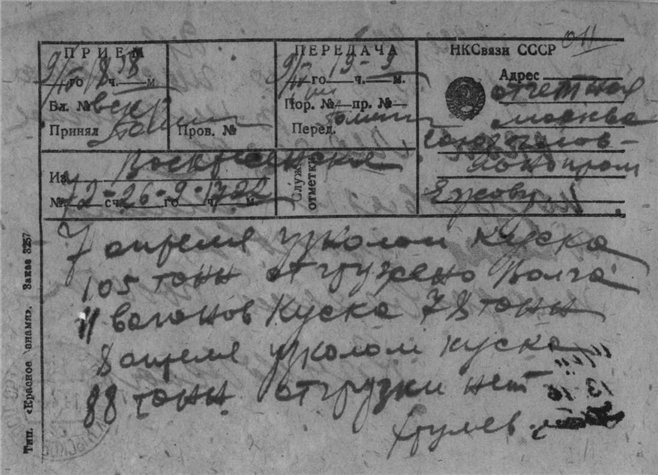 ПРИЕМ
9/IV го 18 ч. 38 м.
Вл. №
Принял
Пров. №
ПЕРЕДАЧА
9/IV го 19 ч. 5 м.
Пор. № пр. №
Перед.
НКСвязи СССР
Адрес отчетная
москва
Ежову
Из Воскресенска
№ 72 сч. 26 го 9 ч. 1722 м.
Служ. отметки
7 апреля уколом куска
105 тонн отгружено Волга
11 вагонов куска 78 тонн
8 апреля уколом куска
88 тонн отгрузки нет
Хрулев
Тип. «Красное знамя». Заказ 3257